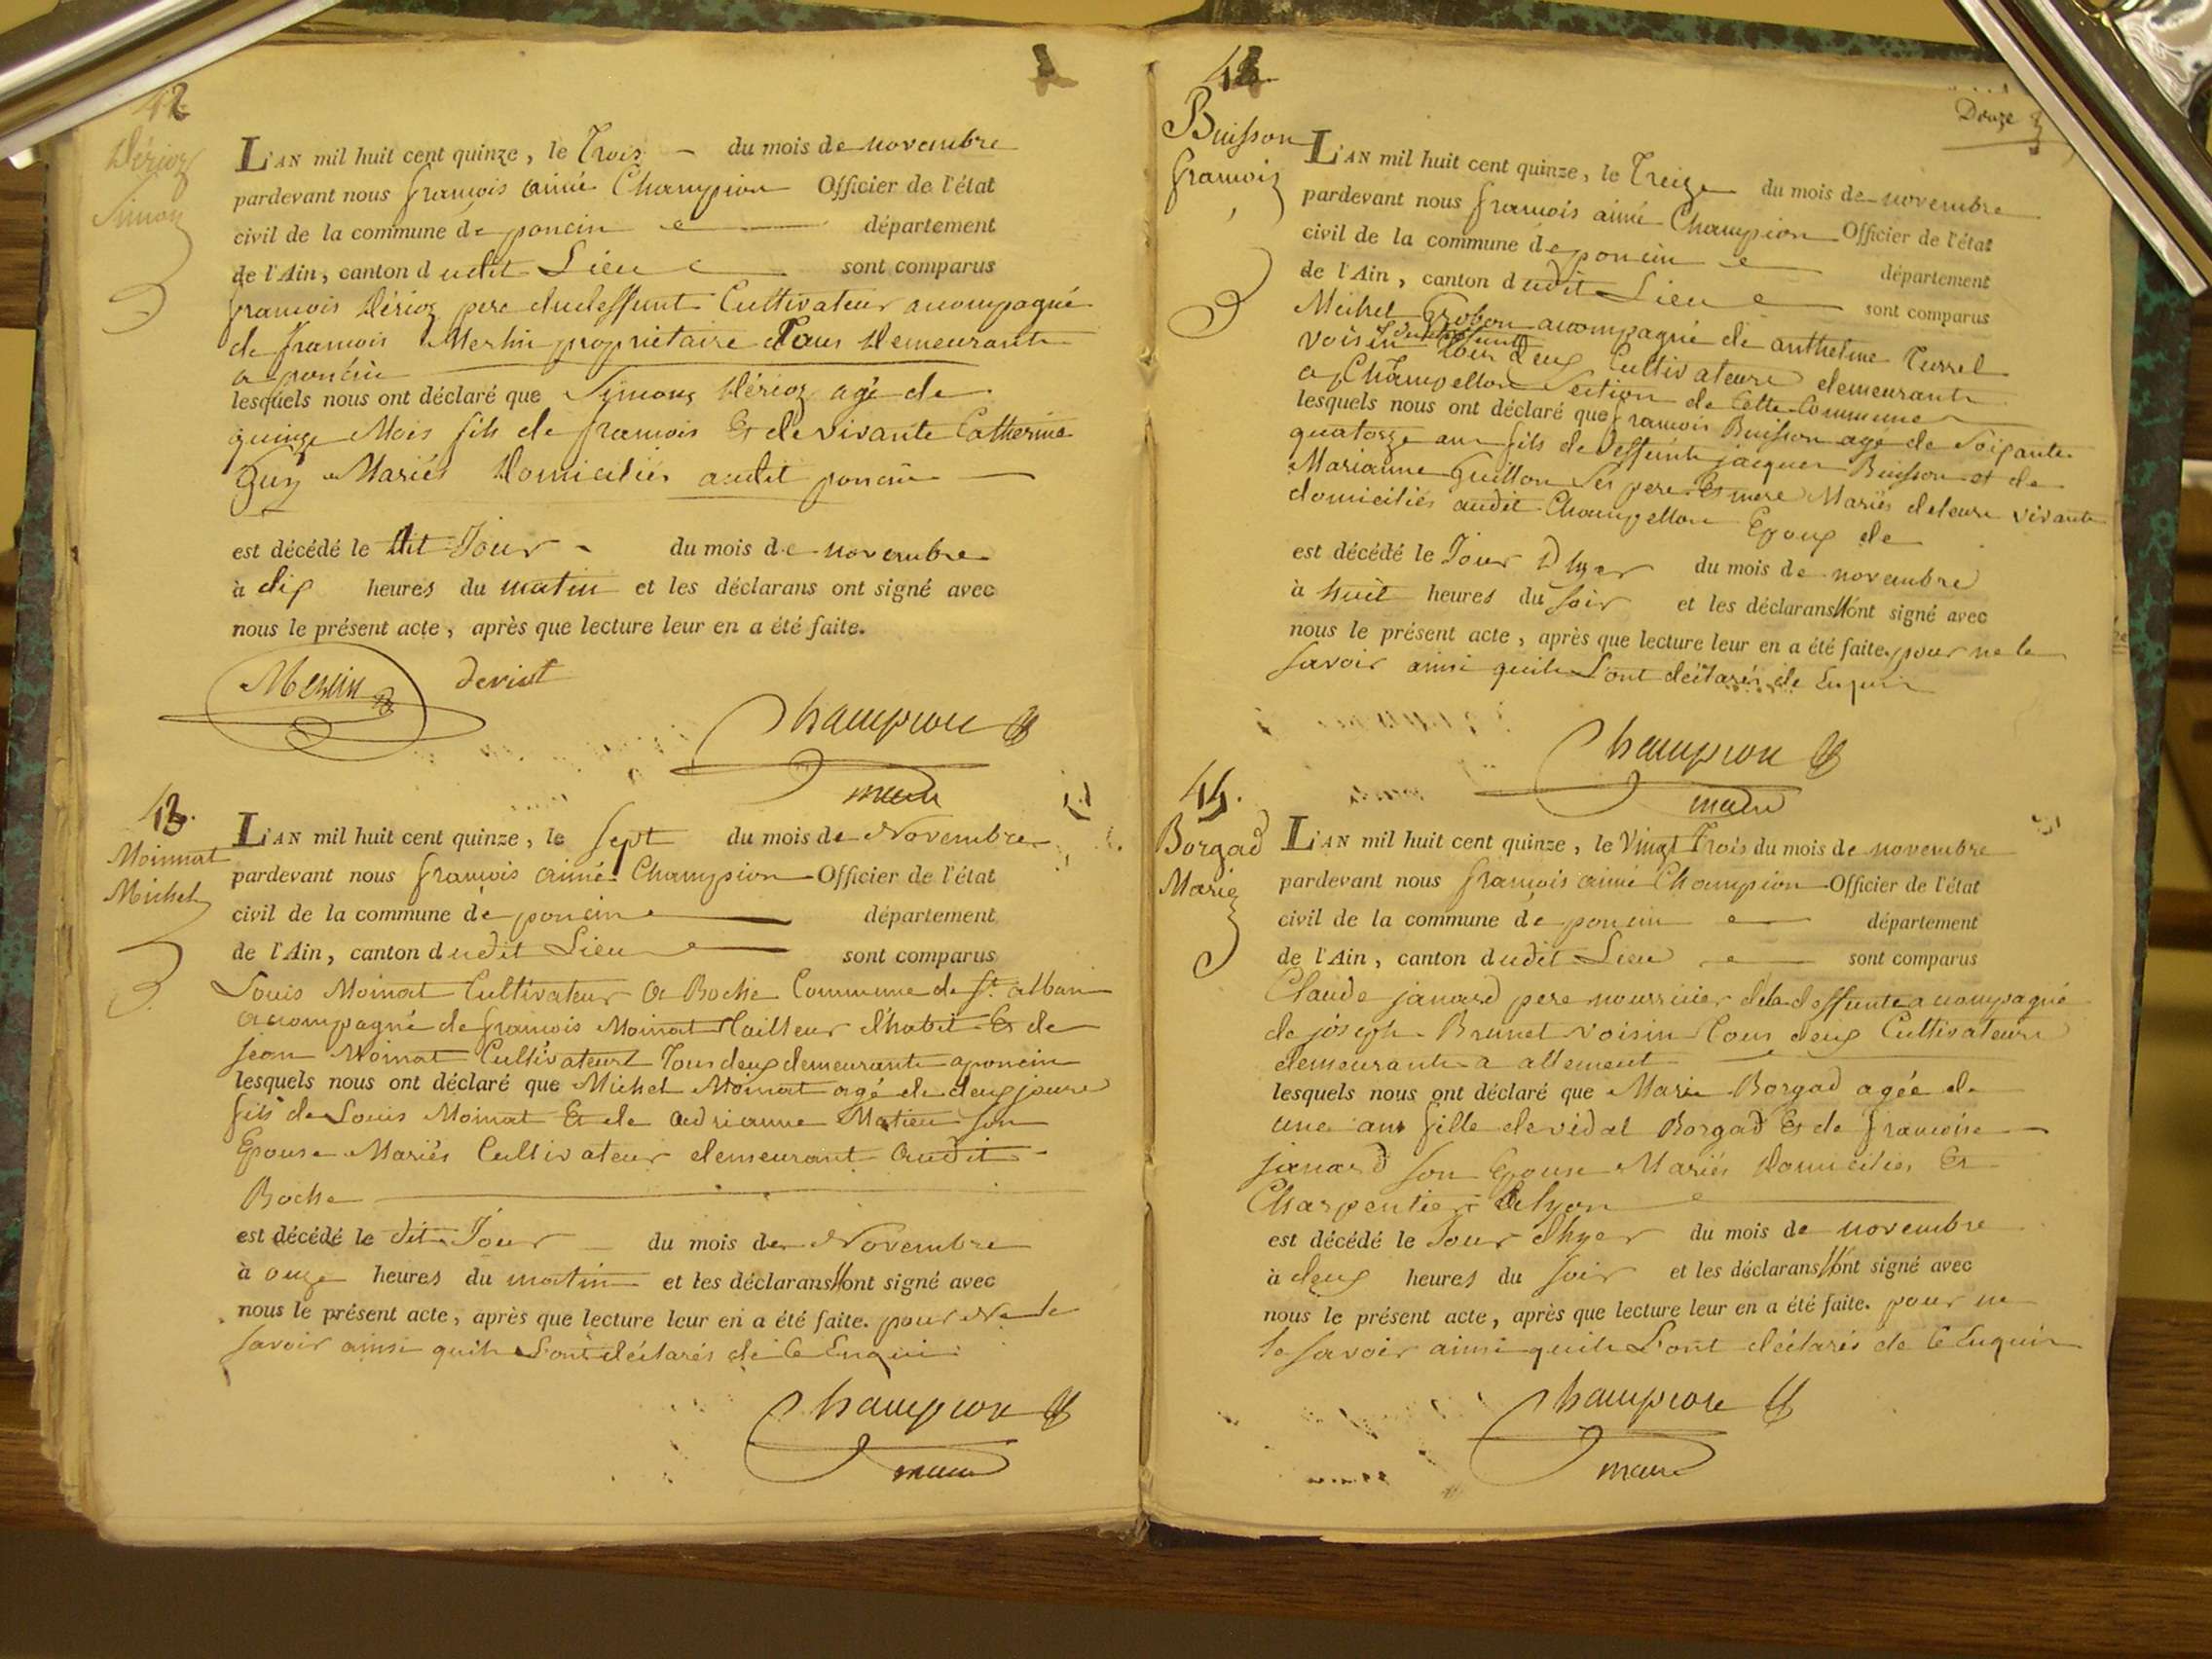 42
Dérioz
Simon
L'AN mil huit cent quinze, le Trois du mois de novembre
pardevant nous françois aimé Champion Officier de l'état
civil de la commune de poncin département
de l'Ain, canton dudit Lieu sont comparus
françois Dérioz pere dudeffunt Cultivateur acompagné
de françois Merlin propriétaire Tous Demeurants
a poncin
lesquels nous ont déclaré que Simon Dérioz agé de
quinze Mois fils de françois Et de vivante Catherine
Guy Mariés Domiciliés audit poncin
est décédé le dit Jour du mois de novembre
à dix heures du matin et les déclarans ont signé avec
nous le présent acte, après que lecture leur en a été faite.
Merlin deriot
Champion
maire
43.
Moinnat
Michel
L'AN mil huit cent quinze, le sept du mois de Novembre
pardevant nous françois aimé Champion Officier de l'état
civil de la commune de poncin département
de l'Ain, canton dudit Lieu sont comparus
Louis Moinat Cultivateur a Boche Commune de St. alban
acompagné de françois Moinat Tailleur d'habit Et de
jean Moinat Cultivateurs Tous deux demeurants a poncin
lesquels nous ont déclaré que Michel Moinat agé de deux jours
fils de Louis Moinat Et de Adrianne Matieu son
Epouse Mariés Cultivateur demeurant Audit
Boche
est décédé le dit Jour du mois de Novembre
à onze heures du matin et les déclarans n'ont signé avec
nous le présent acte, après que lecture leur en a été faite. pour Ne le
savoir ainsi quils L'ont déclarés de ce Enquis
Champion
maire
Douze
Buisson
françois
L'AN mil huit cent quinze, le Treize du mois de novembre
pardevant nous françois aimé Champion Officier de l'état
civil de la commune de poncin département
de l'Ain, canton dudit Lieu sont comparus
Michel Grobon acompagné de anthelme Turrel
voisin du deffunt Tous Deux Cultivateurs demeurants
a Champellon Section de Cette Commune
lesquels nous ont déclaré que françois Buisson agé de Soixante
quatorze ans fils de Deffunts jacques Buisson et de
Marianne Guillon Ses pere Et mere Mariés de leurs vivants
domiciliés audit Champellon Epoux de
est décédé le Jour D'hyer du mois de novembre
à huit heures du soir et les déclarans n'ont signé avec
nous le présent acte, après que lecture leur en a été faite. pour ne le
savoir ainsi quils L'ont déclarés de Enquis
Champion
maire
Borgad
Marie
L'AN mil huit cent quinze, le Vingt Trois du mois de novembre
pardevant nous françois aimé Champion Officier de l'état
civil de la commune de poncin département
de l'Ain, canton dudit Lieu sont comparus
Claude janard pere nourricier de la deffunte acompagné
de joseph Brunet voisin Tous deux Cultivateurs
demeurants a allement
lesquels nous ont déclaré que Marie Borgad agée de
une ans fille de vidal Borgad Et de françoise
janard son Epouse Mariés Domiciliés Et
Charpentier a Lyon
est décédé le Jour d'hyer du mois de novembre
à deux heures du soir et les déclarans n'ont signé avec
nous le présent acte, après que lecture leur en a été faite. pour ne
le savoir ainsi quils L'ont déclarés de ce Enquis
Champion
maire